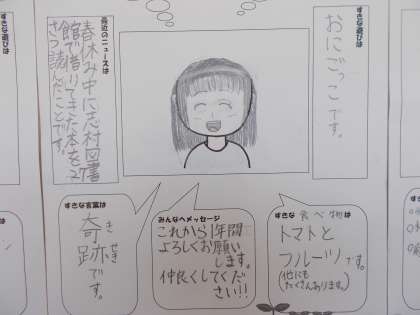 すきな遊びは
おにごっこです。
最近のニュースは
春休み中に志村図書
館で借りてきた本を27
さつ読んだことです。
すきな言葉は
奇跡です。
き
せき
みんなへメッセージ
これから1年間
よろしくお願い
します。
仲良くしてくだ
さい!!
すきな 食べ物は
トマトと
フルーツです。
(他にも
たくさんあります。)
すきな遊びは
すきな